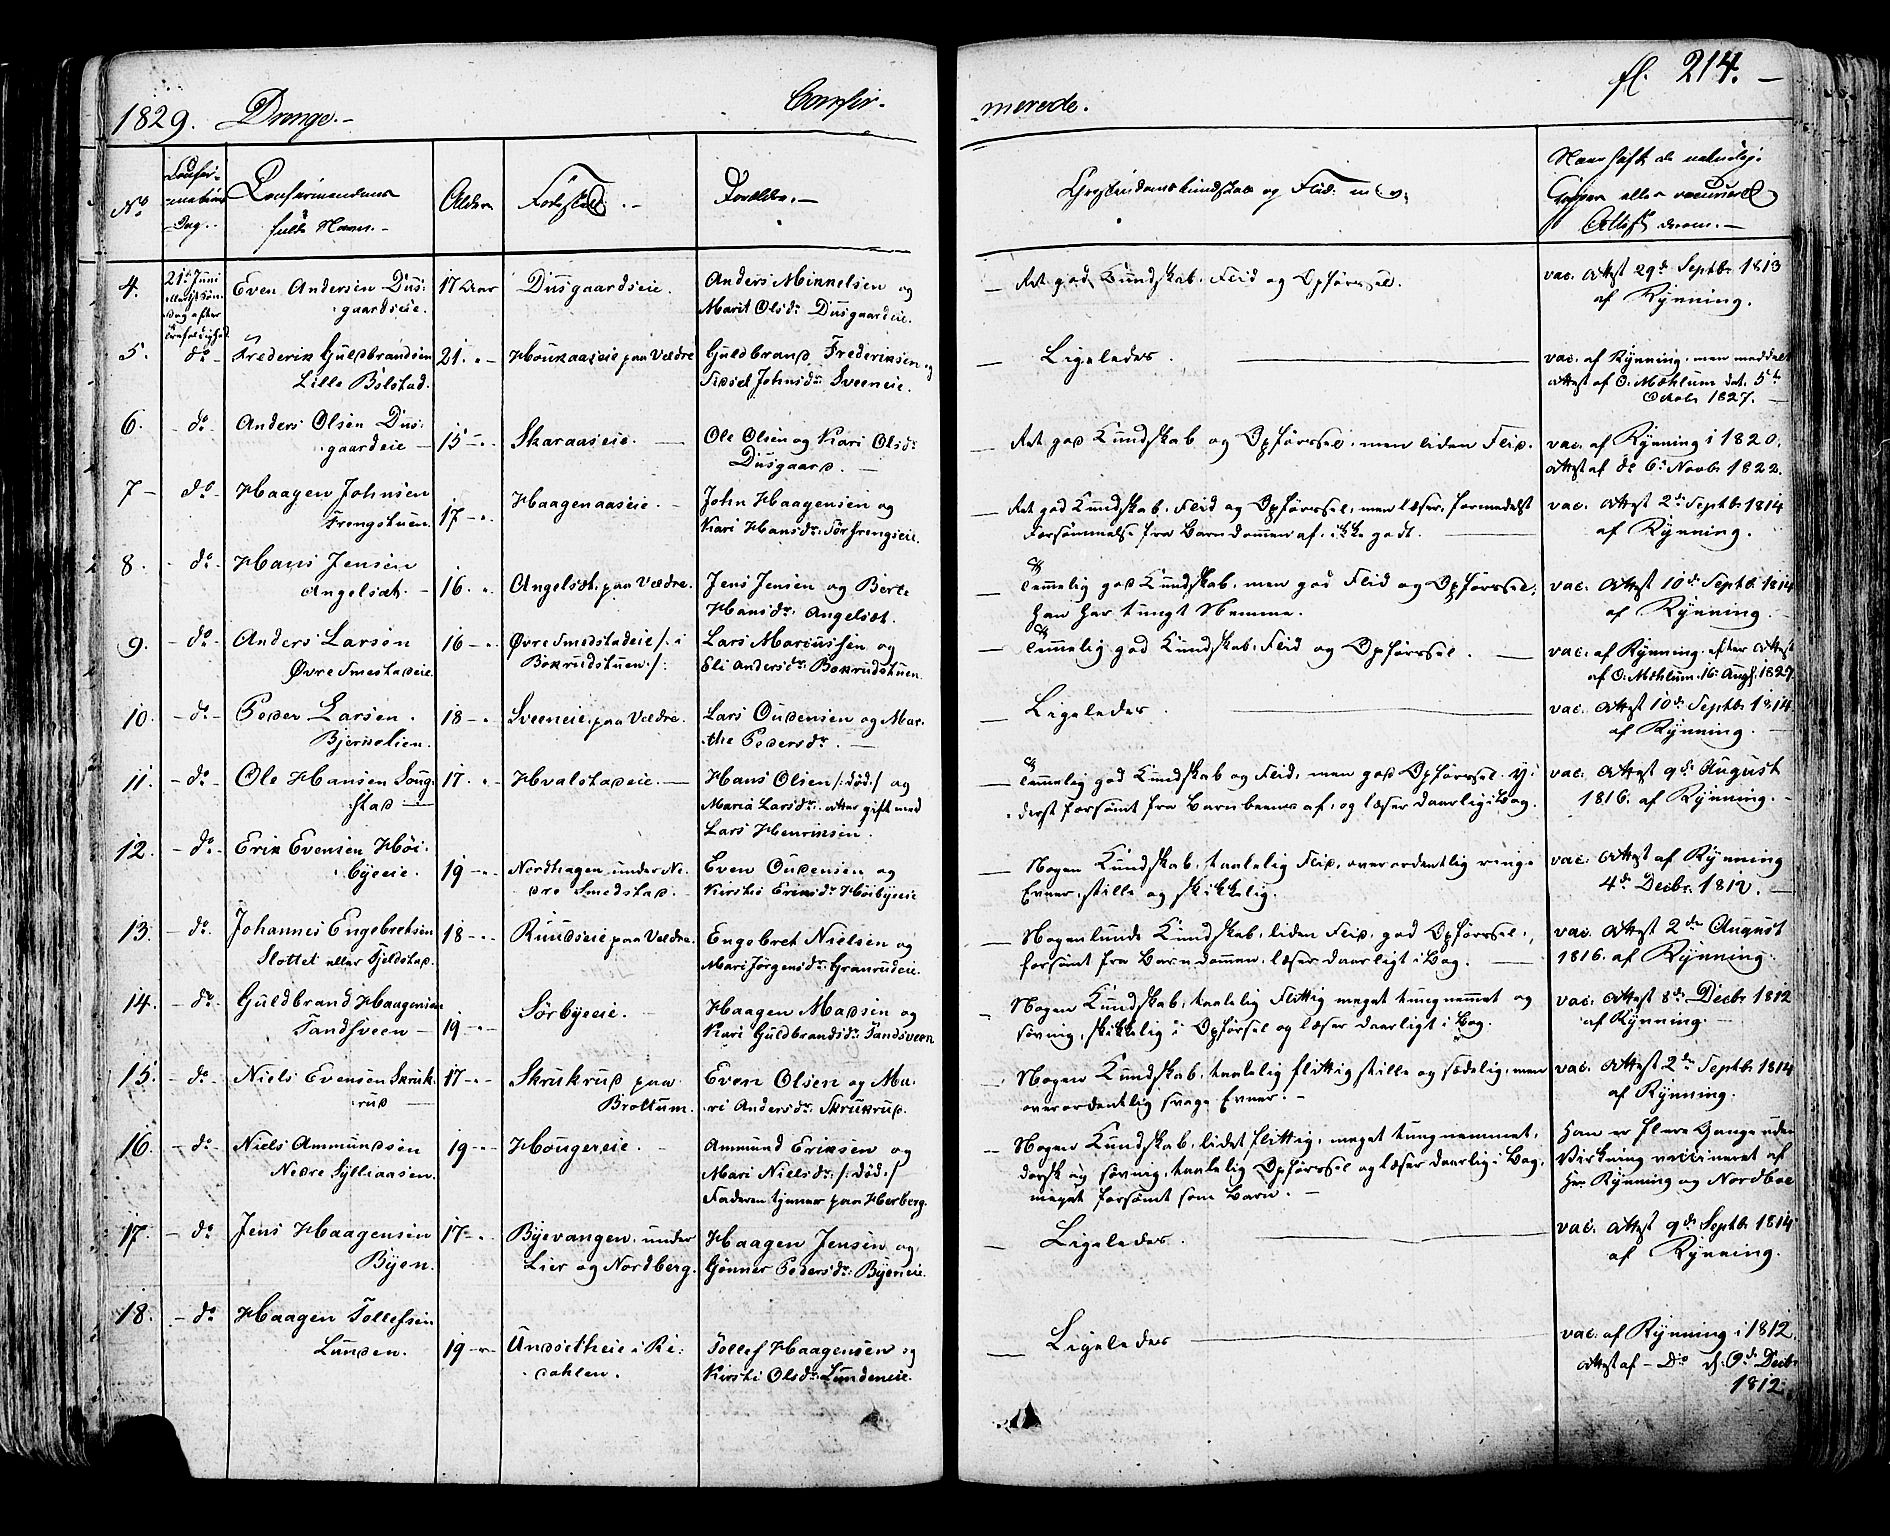 fl. 214.
1829. Drenge.
Confir-
merede.
No
Confir-
mations
Dag.
Confirmandens
fulde Navn.
Alder
Fødested.
Forældre.
Christendomskundskab og Flid. m. v.
Naar havt de naturlige
Kopper eller vaccineret
Attest derom.
4.
21de Juni
Søn-
dag efter
Trefoldighed
Even Andersen Dus-
gaardseie.
17 Aar
Dusgaardseie.
Anders Minnelsen og
Marit Olsdr Dusgaardeie.
Ret god Kundskab, Flid og Opførssel.
vac. Attest 29de Septbr 1813
af Rynning.
5.
do
Frederik Guldbrandsen
Lille Bolstad.
21.
Houkaaseie paa Veldre
Guldbrand Frederiksen og
Sidsel Johnsdr Sveeneie.
Ligeledes.
vac. af Rynning, men meddelt
Attest af O. Mæhlum dat. 5te
Octobr 1827.
6.
do
Anders Olsen Dus-
gaardeie
15
Skaraaseie.
Ole Olsen og Kari Olsdr
Dusgaard.
Ret god Kundskab og Opførssel, men liden Flid.
vac. af Rynning i 1820,
Attest af do 6. Novbr 1822.
7
do
Haagen Johnsen
Frengstuen
17
Haagenaaseie.
John Haagensen og
Kari Hansdr Sørfrengseie.
Ret god Kundskab, Flid og Opførssel, men læser, formedelst
Forsømmelse fra Barndommen af, ikke godt.
vac. Attest 2den Septbr 1814
af Rynning.
8.
do
Hans Jensen
Angelsæt.
16
Angelsæt, paa Veldre.
Jens Jensen og Berte
Hansdr Angelsæt.
Temmelig god Kundskab, men god Flid og Opførssel,
han har tungt Nemme.
vac. Attest 10de Septbr 1814
af Rynning.
9.
do
Anders Larsen
Øvre Smestadeie.
16
Øvre Smedstadeie /: i
Bokrudstuen :/
Lars Mariussen og
Eli Andersdr Bokrudstuen.
Temmelig god Kundskab, Flid og Opførssel.
vac. af Rynning, efter Attest
af O. Mæhlum 16. Augs. 1827
10.
do
Peder Larsen.
Bjørnelien.
18
Sveeneie, paa Veldre.
Lars Oudensen og Mar-
the Pedersdr.
Ligeledes.
vac. Attest 10de Septbr 1814
af Rynning.
11.
do
Ole Hansen Soug-
stad
17.
Hvalstadeie.
Hans Olsen /: død :/ og
Maria Larsdr atter gift med
Lars Henriksen.
Temmelig god Kundskab og Flid, men god Opførssel. Y-
derst forsømt fra Barnbeenet af, og læser daarlig i Bog.
vac. Attest 9de August
1816. af Rynning.
12.
do
Erik Evensen Høi-
byeeie.
19
Nordhagen under Ne-
dre Smedstad.
Even Oudensen og
Kirsti Eriksdr Høibyeeie
Nogen Kundskab, taalelig Flid, overordentlig ringe
Evner, stille og skikkelig.
vac. Attest af Rynning
4de Decbr. 1812.
13.
do
Johannes Engebretsen
Slottet eller Fjeldstad.
18
Ruudseie paa Veldre.
Engebret Nielsen og
Mari Jørgensdr Granrudeie.
Nogenlunde Kundskab, liden Flid, god Opførssel,
forsømt fra Barndommen, læser daarligt i Bog.
vac. Attest 2den August
1816. af Rynning.
14.
do
Guldbrand Haagensen
Tandsveen
19
Sørbyeeie.
Haagen Madsen og
Kari Guldbrandsdr Tandsveen
Nogen Kundskab, taalelig flittig meget tungnemmet og
søvnig, skikkelig i Opførsel og læser daarligt i Bog.
vac. Attest 8de Decbr 1812
af Rynning.
15.
do
Niels Evensen Skruk-
rud
17
Skrukrud paa
Brottum.
Even Olsen og Ma-
ri Andersdr Skrukrud.
Nogen Kundskab, taalelig flittig stille og sædelig, men
overordentlig svage Evner.
vac. Attest 2den Septbr 1814
af Rynning.
16.
do
Niels Ammundsen
Nedre Sylliaasen.
19
Hougereie.
Ammund Eriksen og
Mari Nielsdr /: død :/
Faderen tjener paa Herberg.
Nogen Kundskab, lidet flittig, meget tungnemmet,
dorsk og søvnig, taalelig Opførssel og læser daarlig i Bog,
meget forsømt som Barn.
Han er flere Gange uden
Virkning vaccineret af
Hr. Rynning og Nordboe
17.
do
Jens Haagensen
Byen.
17
Byevangen, under
Lier og Nordberg.
Haagen Jensen og
Gunner Pedersdr Byeneie.
Ligeledes.
vac. Attest 9de Septbr 1814
af Rynning.
18.
do
Haagen Tollefsen
Lunden.
19
Undsetheie i Ri-
dahlen.
Tollef Haagensen og
Kirsti Olsdr Lundeneie.
Ligeledes
vac. af Rynning i 1812.
Attest af Do Decbr
1812.